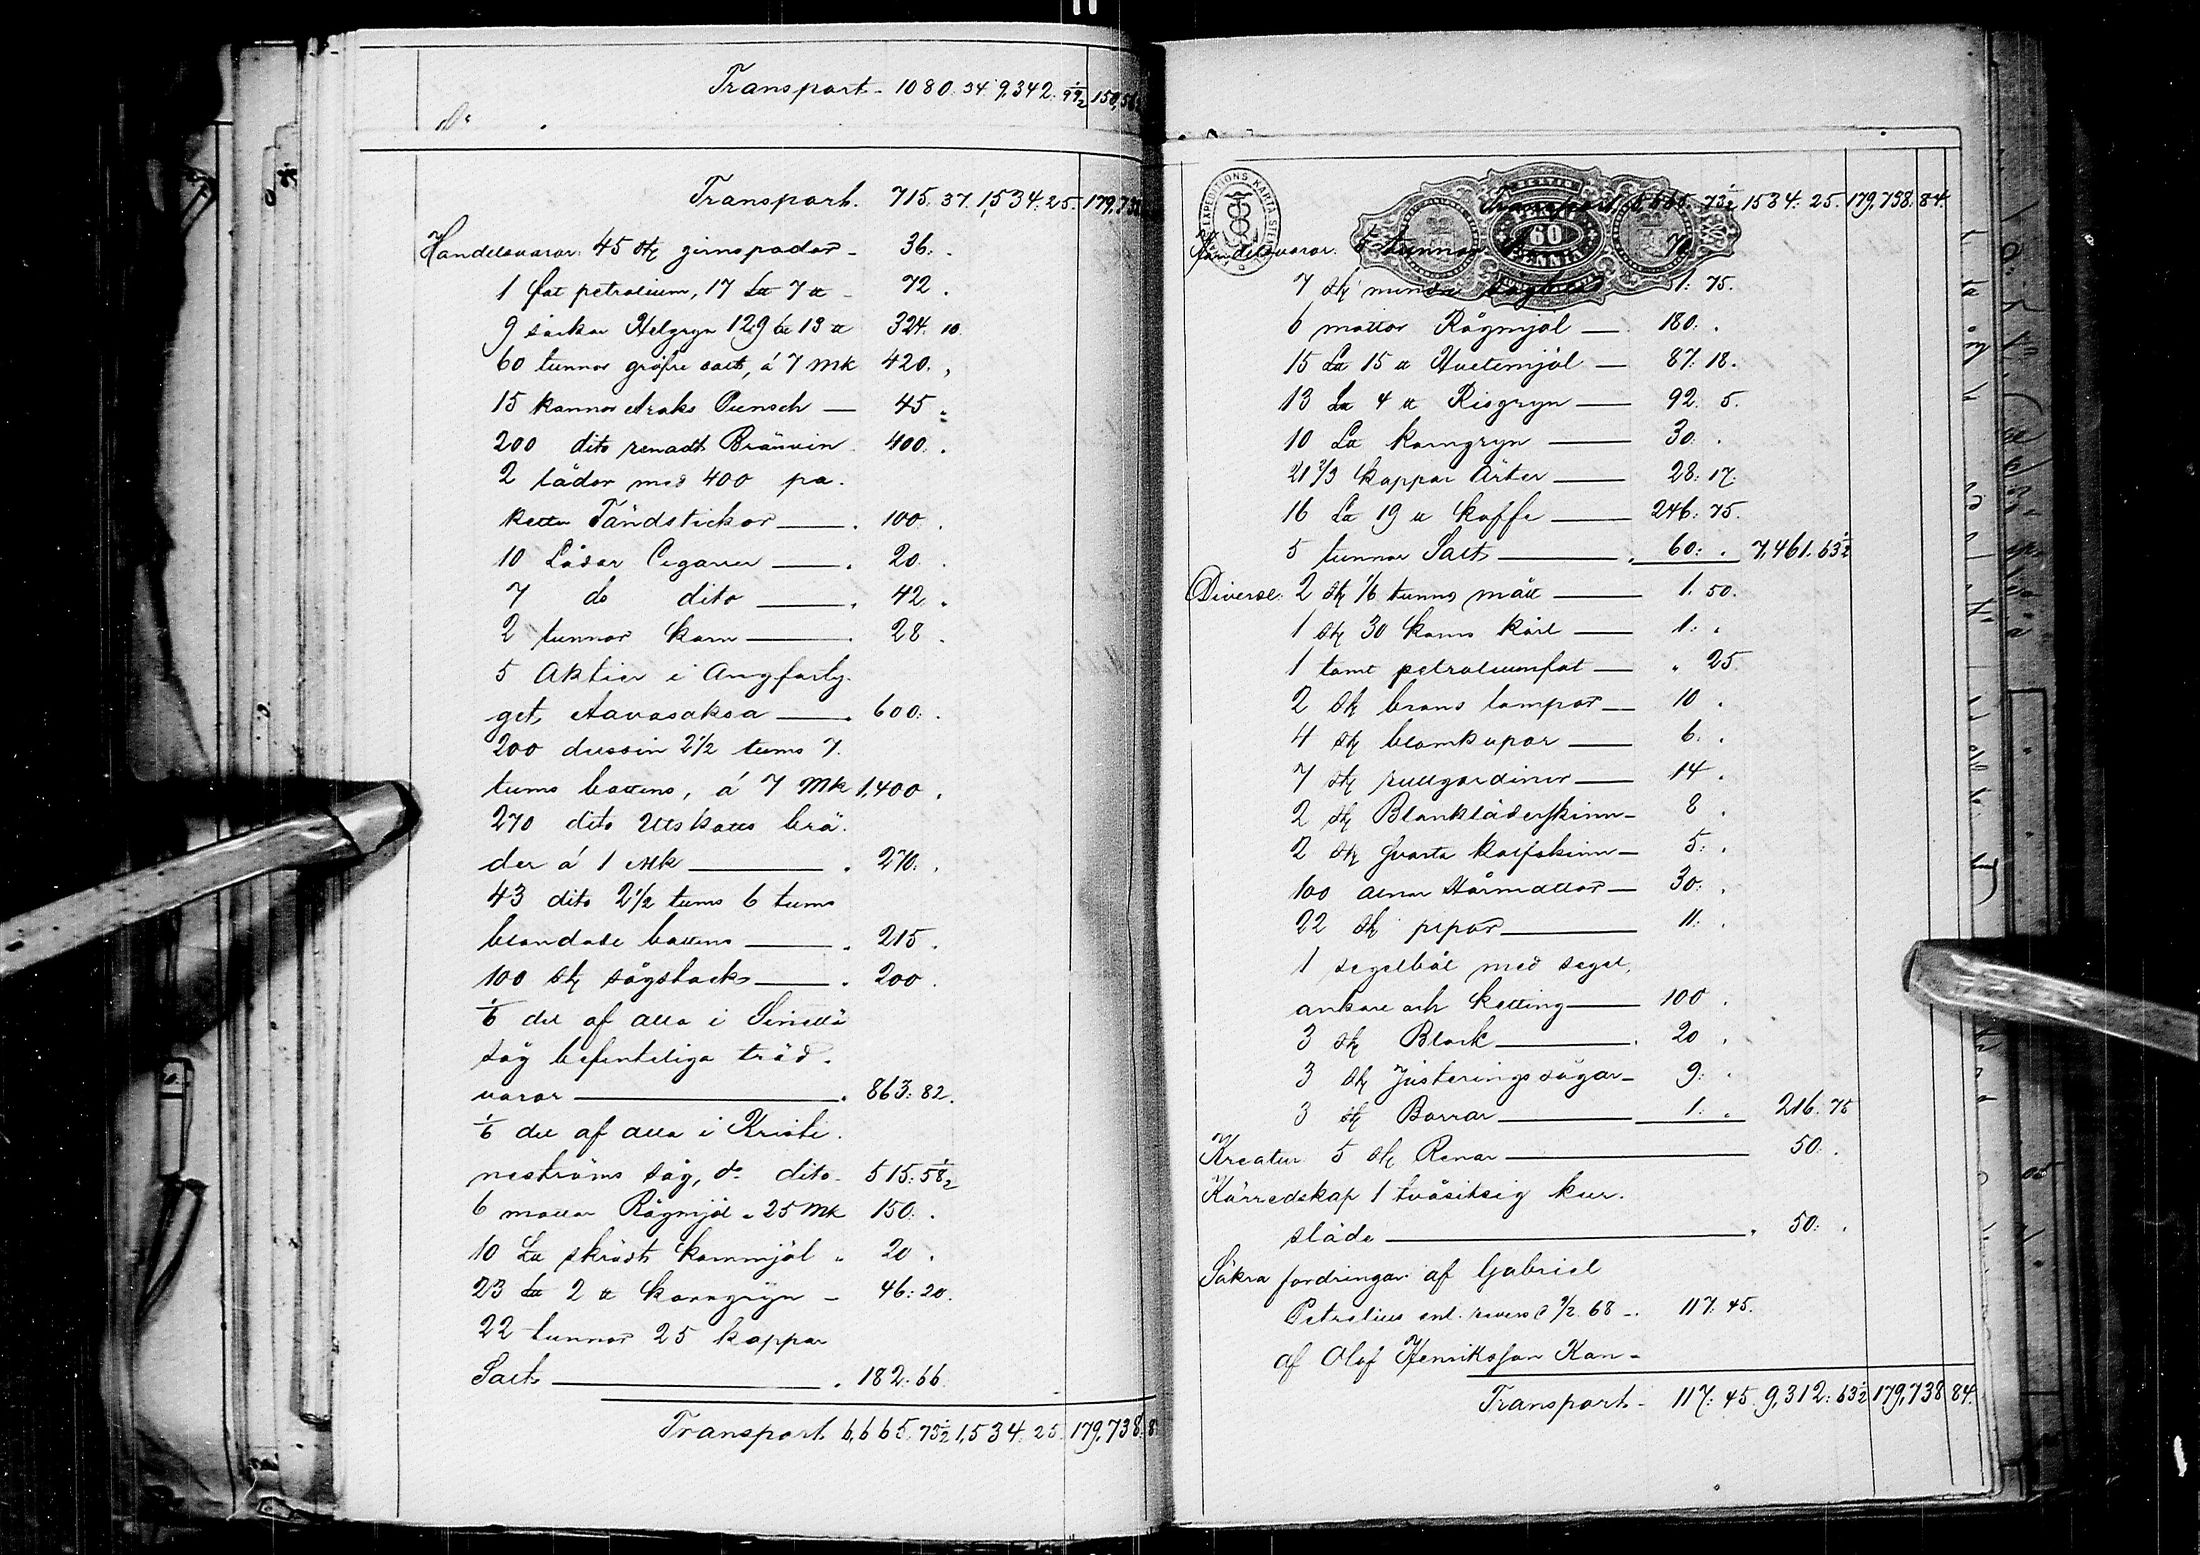 Transport - 1080. 34. 9,342. 99½ 150,5
Transport. 715. 37. 1,534: 25. 179,738
Handelsvaror: 45 stk jernspador - 36: .
1 fat petroleum, 17 L℔ 7 ℔ - 72 .
9 säckar Helgryn 129 L℔ 13 ℔ 324. 10.
60 tunnor gröfre salt, á 7 Mk 420. ,
15 kannor Araks Punsch — 45 „
200 dito renadt Bränvin 400. .
2 lådor med 400 pa-
ketter Tändstickor — . 100 .
10 Lådor Cigarrer — . 20 .
7 do dito — . 42 .
2 tunnor korn — . 28 .
5 Aktier i Ångfarty-
get, Aavasaksa — . 600: .
200 dussin 2½ tums 7.
tums battens, á 7 Mk 1,400 .
270 dito Utskotts brä-
der á 1 Mk — . 270. .
43 dito 2½ tums 6 tums
blandade battens — . 215 .
100 stk sågstock — . 200 .
1/6 del af alla i Sinettä
såg befinteliga träd-
varor — . 863: 82.
1/6 del af alla i Kristi-
neströms såg, do dito - 515: 58½
6 mattor Rågmjöl á 25 Mk 150: .
10 L℔ skrädt kornmjöl „ 20 .
23 L℔ 2 ℔ korngryn - 46: 20.
22 tunnor 25 kappar
Salt — . 182: 66.
Transport 6,665. 73½ 1,534: 25. 179,738. 8
EXPEDITIONS KARTA SIGILL
60
PENNIÄ
Transport 6,665. 73½ 1534: 25. 179,738. 84.
Handelsvaror. 5 tunnor
7 stk mindre 1: 75.
6 mattor Rågmjöl — 180: .
15 L℔ 15 ℔ Hvetemjöl — 87: 18.
13 L℔ 4 ℔ Risgryn — 92. 5.
10 L℔ korngryn — 30. .
21 2/3 kappar Ärter — 28: 17.
16 L℔ 19 ℔ kaffe — 246: 75.
5 tunnor Salt — . 60: . 7,461. 63½
Diverse: 2 stk 1/6 tunns mått — 1. 50.
1 stk 30 kanns kärl — 1: .
1 tomt petroleumfat — „ 25.
2 stk brons lampor — 10 .
4 stk blomkupor — 6. .
7 stk rullgardiner — 14 .
2 stk Blankläderskinn — 8 .
2 stk svarta kalfskinn — 5: .
100 alnar Hårmattor — 30: .
22 stk pipor — 11: .
1 segelbåt med segel,
ankare och ketting — 100 .
3 stk Block — . 20 .
3 stk Justeringssågar — 9: .
3 stk Borrar — 1: . 216. 75
Kreatur 5 stk Renar — 50: .
Körredskap 1 tvåsitsig kur-
släde — . 50: .
Säkra fordringar: af Gabriel
Petrelius enl. revers d 9/2 68 - . 117: 45.
af Olof Henriksson Kan-
Transport - 117: 45. 9,312: 63½ 179,738 84.